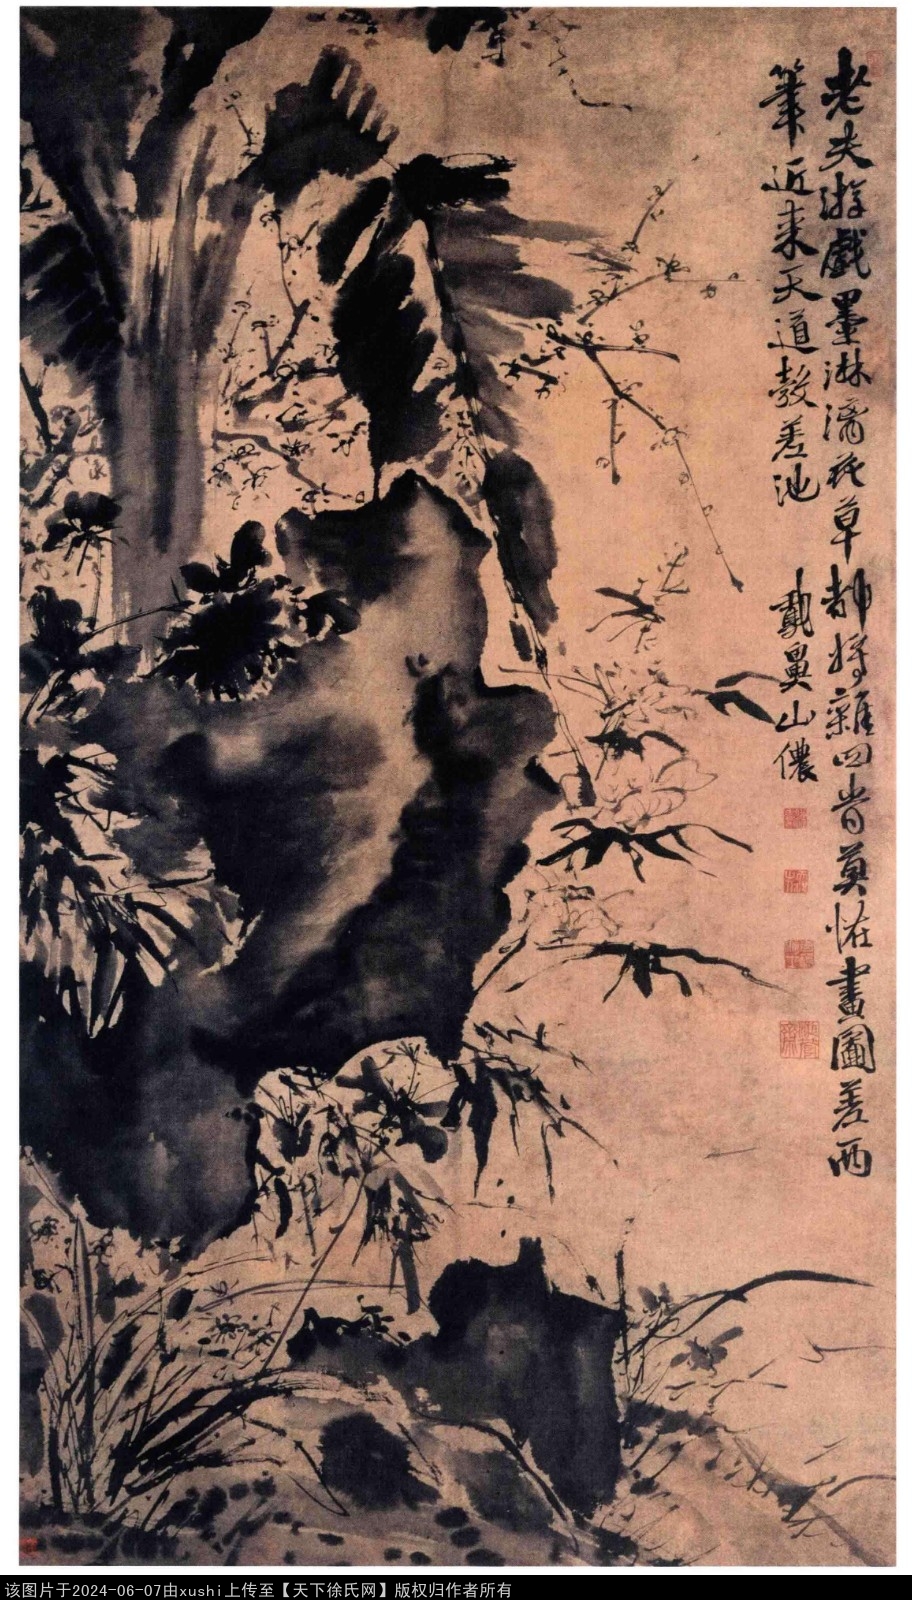 老夫游戲墨淋漓花草都將雜四時莫怪畫圖差兩
筆近來天道彀差池
戴鼻山儂
该图片于2024-06-07由xushi上传至【天下徐氏网】版权归作者所有